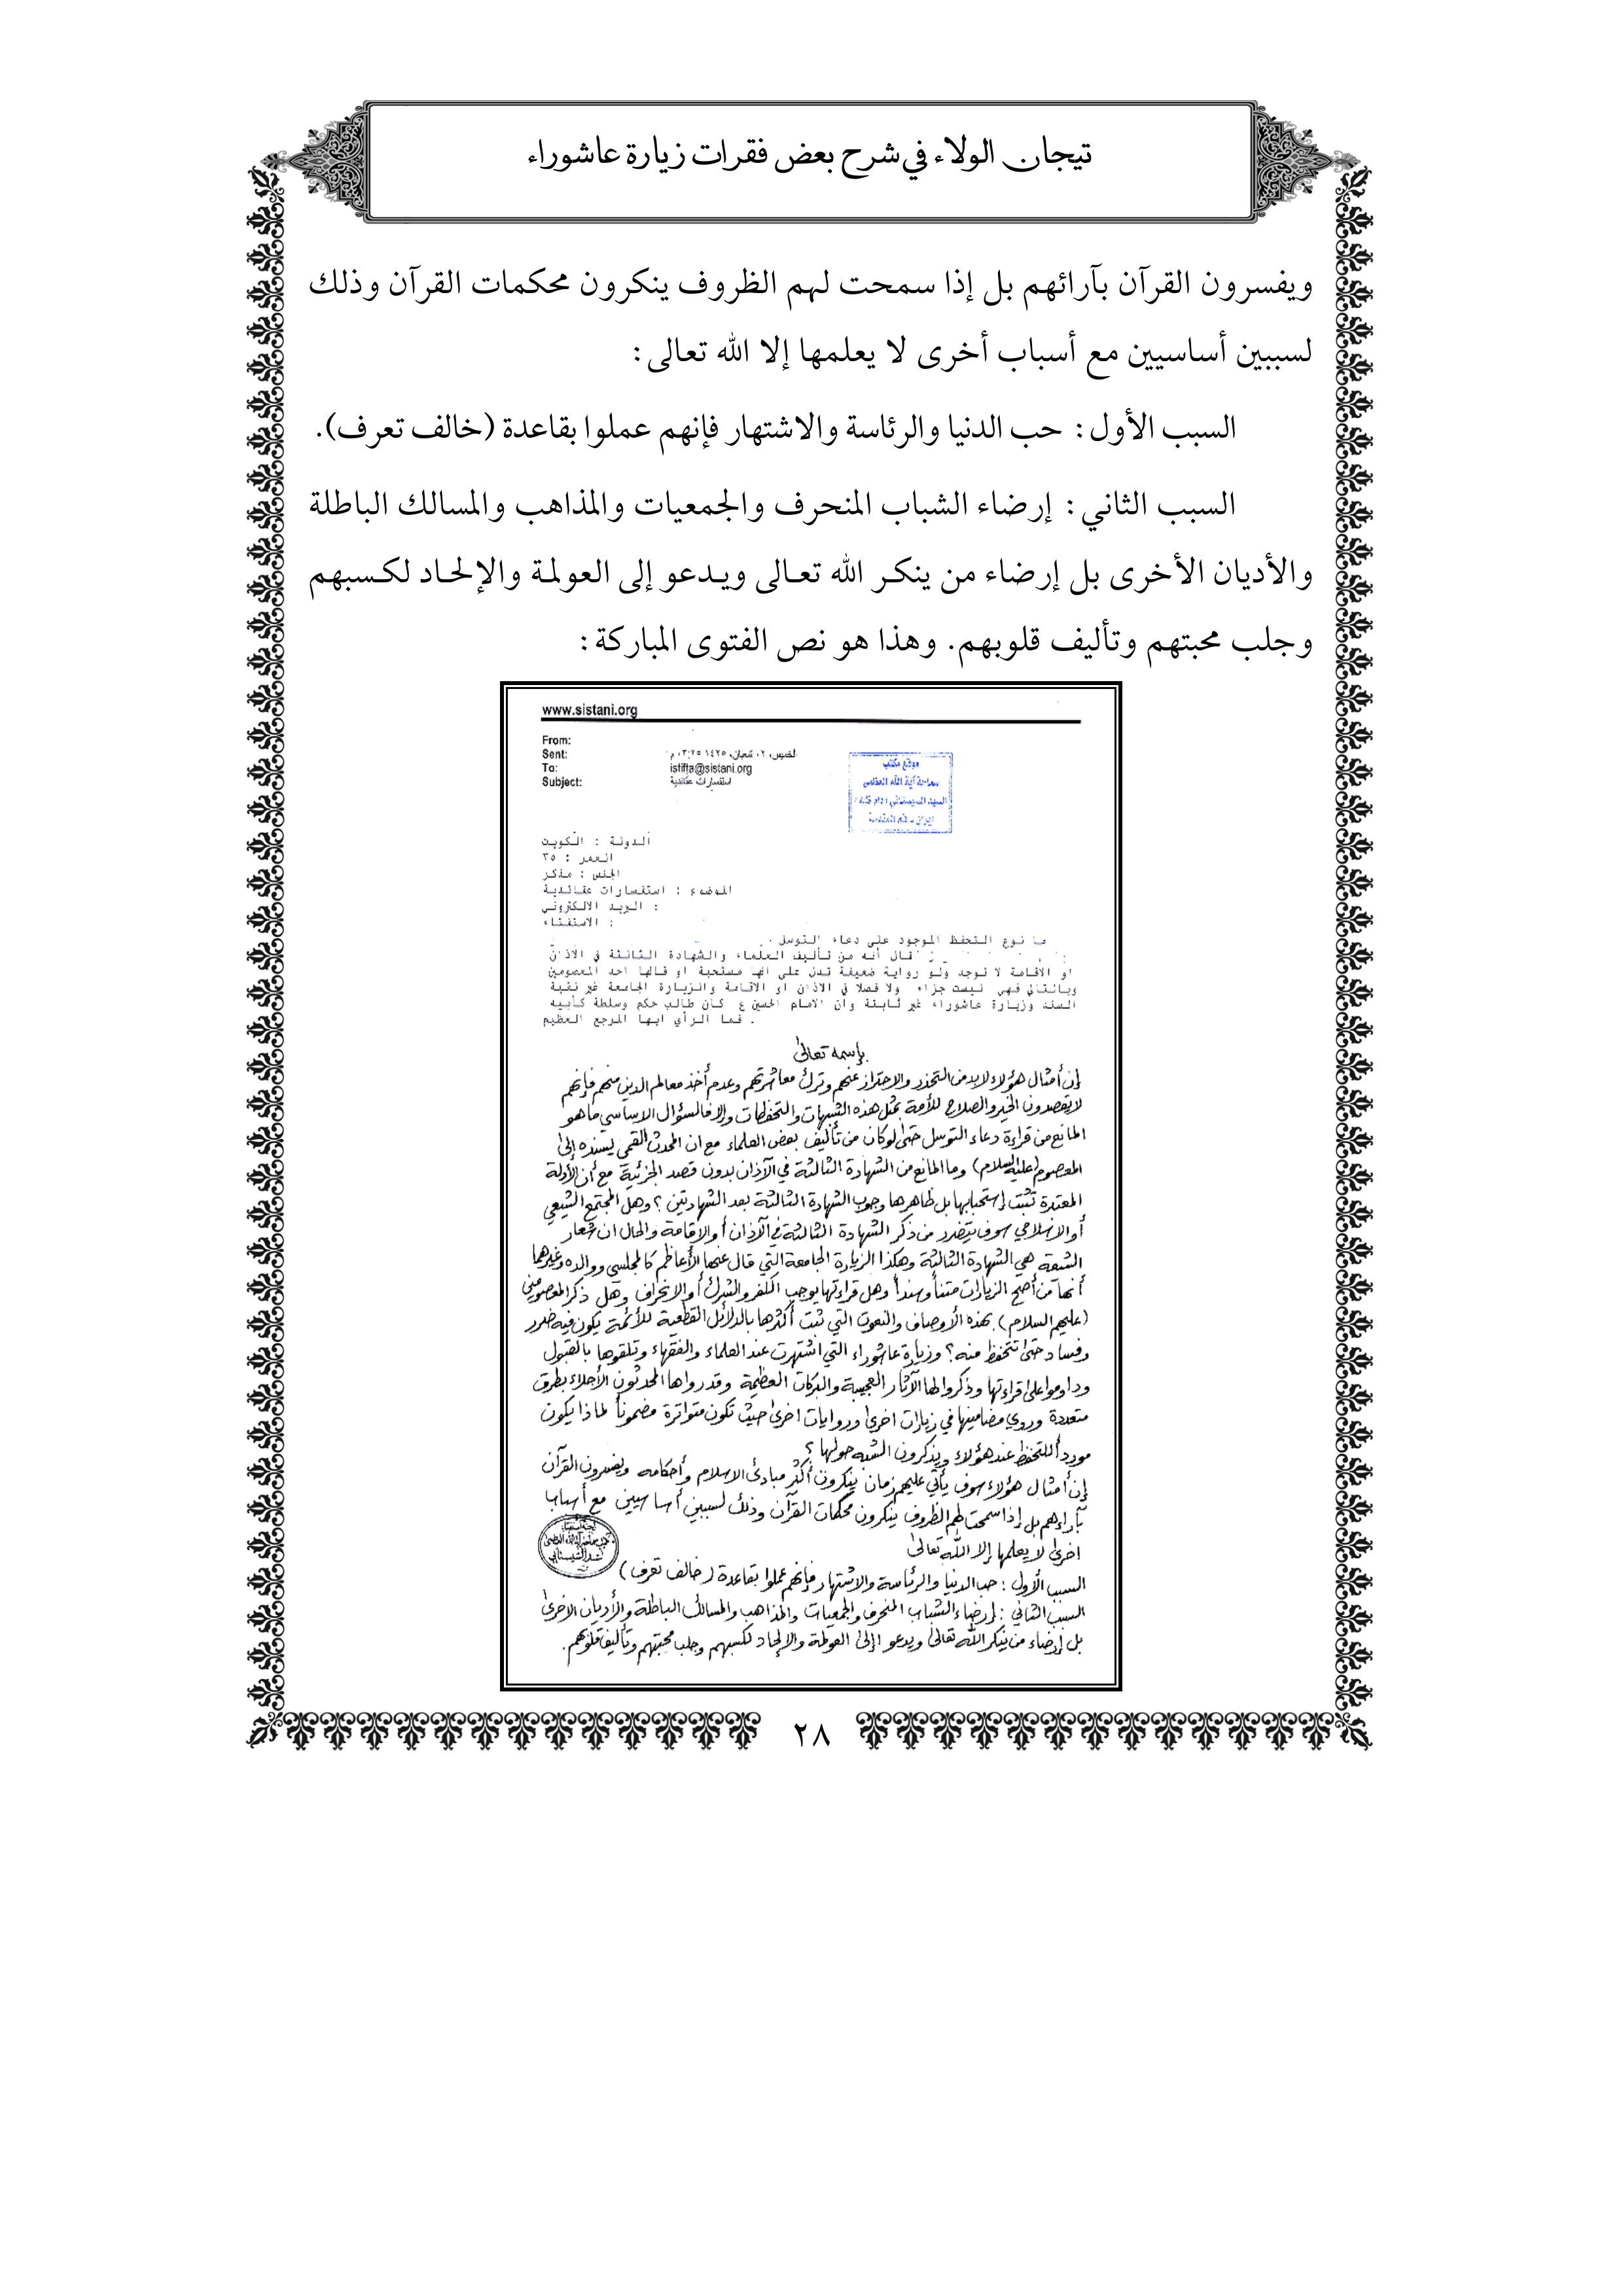 تيجان الولاء في شرح بعض فقرات زيارة عاشوراء
ويفسرون القرآن بآرائهم بل إذا سمحت لهم الظروف ينكرون محكمات القرآن وذلك
لسببين أساسيين مع أسباب أخرى لا يعلمها إلا الله تعالى:
السبب الأول: حب الدنيا والرئاسة والاشتهار فإنهم عملوا بقاعدة (خالف تعرف).
السبب الثاني: إرضاء الشباب المنحرف والجمعيات والمذاهب والمسالك الباطلة
والأديان الأخرى بل إرضاء من ينكر الله تعالى ويدعو إلى العولمة والإلحاد لكسبهم
وجلب محبتهم وتأليف قلوبهم. وهذا هو نص الفتوى المباركة:
www.sistani.org
From:
Sent: الخميس، ٠٢ شعبان، ١٤٢٥ ٠٣:٢٥ م
To: istifta@sistani.org
Subject: استفسارات عقائدية
موقع مكتب
سماحة آية الله العظمى
السيد السيستاني (دام ظله)
إيران - قم المقدسة
الدولة : الكويت
العمر : ٣٥
الجنس : مذكر
الموضوع : استفسارات عقائدية
البريد الالكتروني :
الاستفتاء :
ما نوع التحفظ الموجود على دعاء التوسل .
قال أنه من تأليف العلماء والشهادة الثالثة في الاذان
او الاقامة لا توجد ولو رواية ضعيفة تدل على انها مستحبة او قالها احد المعصومين
وبالتالي فهي ليست جزاء ولا فصلا في الاذان او الاقامة والزيارة الجامعة غير نقية
السند وزيارة عاشوراء غير ثابتة وأن الامام الحسين ع كان طالب حكم وسلطة كأبيه
فما الرأي ايها المرجع العظيم .
بإسمه تعالى
إن أمثال هؤلاء لابد من التحذر والاحتراز عنهم وترك معاشرتهم وعدم أخذ معالم الدين منهم فإنهم
لا يقصدون الخير والصلاح للأمة بمثل هذه الشبهات والتحفظات وإلا فالسؤال الاساسي ما هو
المانع من قراءة دعاء التوسل حتى لو كان من تأليف بعض العلماء مع ان المحدث القمي يسنده إلى
المعصوم (عليه السلام) وما المانع من الشهادة الثالثة في الآذان بدون قصد الجزئية مع أن الأدلة
المعتبرة تثبت إستحبابها بل ظاهرها وجوب الشهادة الثالثة بعد الشهادتين ؟ وهل المجتمع الشيعي
أو الاسلامي سوف يتضرر من ذكر الشهادة الثالثة في الآذان أو الإقامة والحال ان شعار
الشيعة هي الشهادة الثالثة وهكذا الزيارة الجامعة التي قال عنها الأعاظم كالمجلسي ووالده وغيرهما
أنها من أصح الزيارات متناً وسنداً وهل قراءتها يوجب الكفر والشرك أو الانحراف وهل ذكر المعصومين
(عليهم السلام) بهذه الأوصاف والنعوت التي ثبت أكثرها بالدلائل القطعية للأئمة يكون فيه ضرر
وفساد حتى تتحفظ منه ؟ وزيارة عاشوراء التي اشتهرت عند العلماء والفقهاء وتلقوها بالقبول
وداوموا على قراءتها وذكروا لها الآثار العجيبة والبركات العظيمة وقد رواها المحدثون الأجلاء بطرق
متعددة وروي مضامينها في زيارات اخرى وروايات اخرى حيث تكون متواترة مضموناً لماذا يكون
مورداً للتحفظ عند هؤلاء ويذكرون الشبه حولها ؟
إن أمثال هؤلاء سوف يأتي عليهم زمان ينكرون أكثر مبادئ الاسلام وأحكامه ويفسرون القرآن
بآراءهم بل إذا سمحت لهم الظروف ينكرون محكمات القرآن وذلك لسببين أساسيين مع أسباب
اخرى لا يعلمها إلا الله تعالى
السبب الأول : حب الدنيا والرئاسة والاشتهار فإنهم عملوا بقاعدة (خالف تعرف)
السبب الثاني : إرضاء الشباب المنحرف والجمعيات والمذاهب والمسالك الباطلة والأديان الاخرى
بل إرضاء من ينكر الله تعالى ويدعو إلى العولمة والإلحاد لكسبهم وجلب محبتهم وتأليف قلوبهم.
٢٨